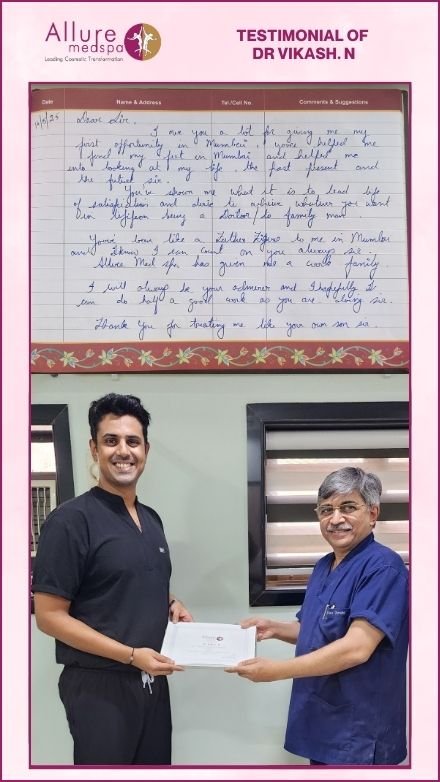 Allure
medspa
Leading Cosmetic Transformation
TESTIMONIAL OF
DR VIKASH. N
Date Name & Address Tel/Cell No. Comments & Suggestions
Dear Sir,
I owe you a lot for giving me my
first opportunity in Mumbai, you've helped me
find my feet in Mumbai and helped me
into looking at my life, the past present and
the future sir.
You've shown me what it is to lead life
of satisfaction and to achieve whatever you want
being a Doctor / family man.
You've been like a father figure to me in Mumbai
and I know I can count on you always sir.
Allure Med spa has given me a work family.
I will always be your admirer and I hopefully I
can do half a good work as you are doing sir.
Thank you for treating me like your own son sir.
Allure